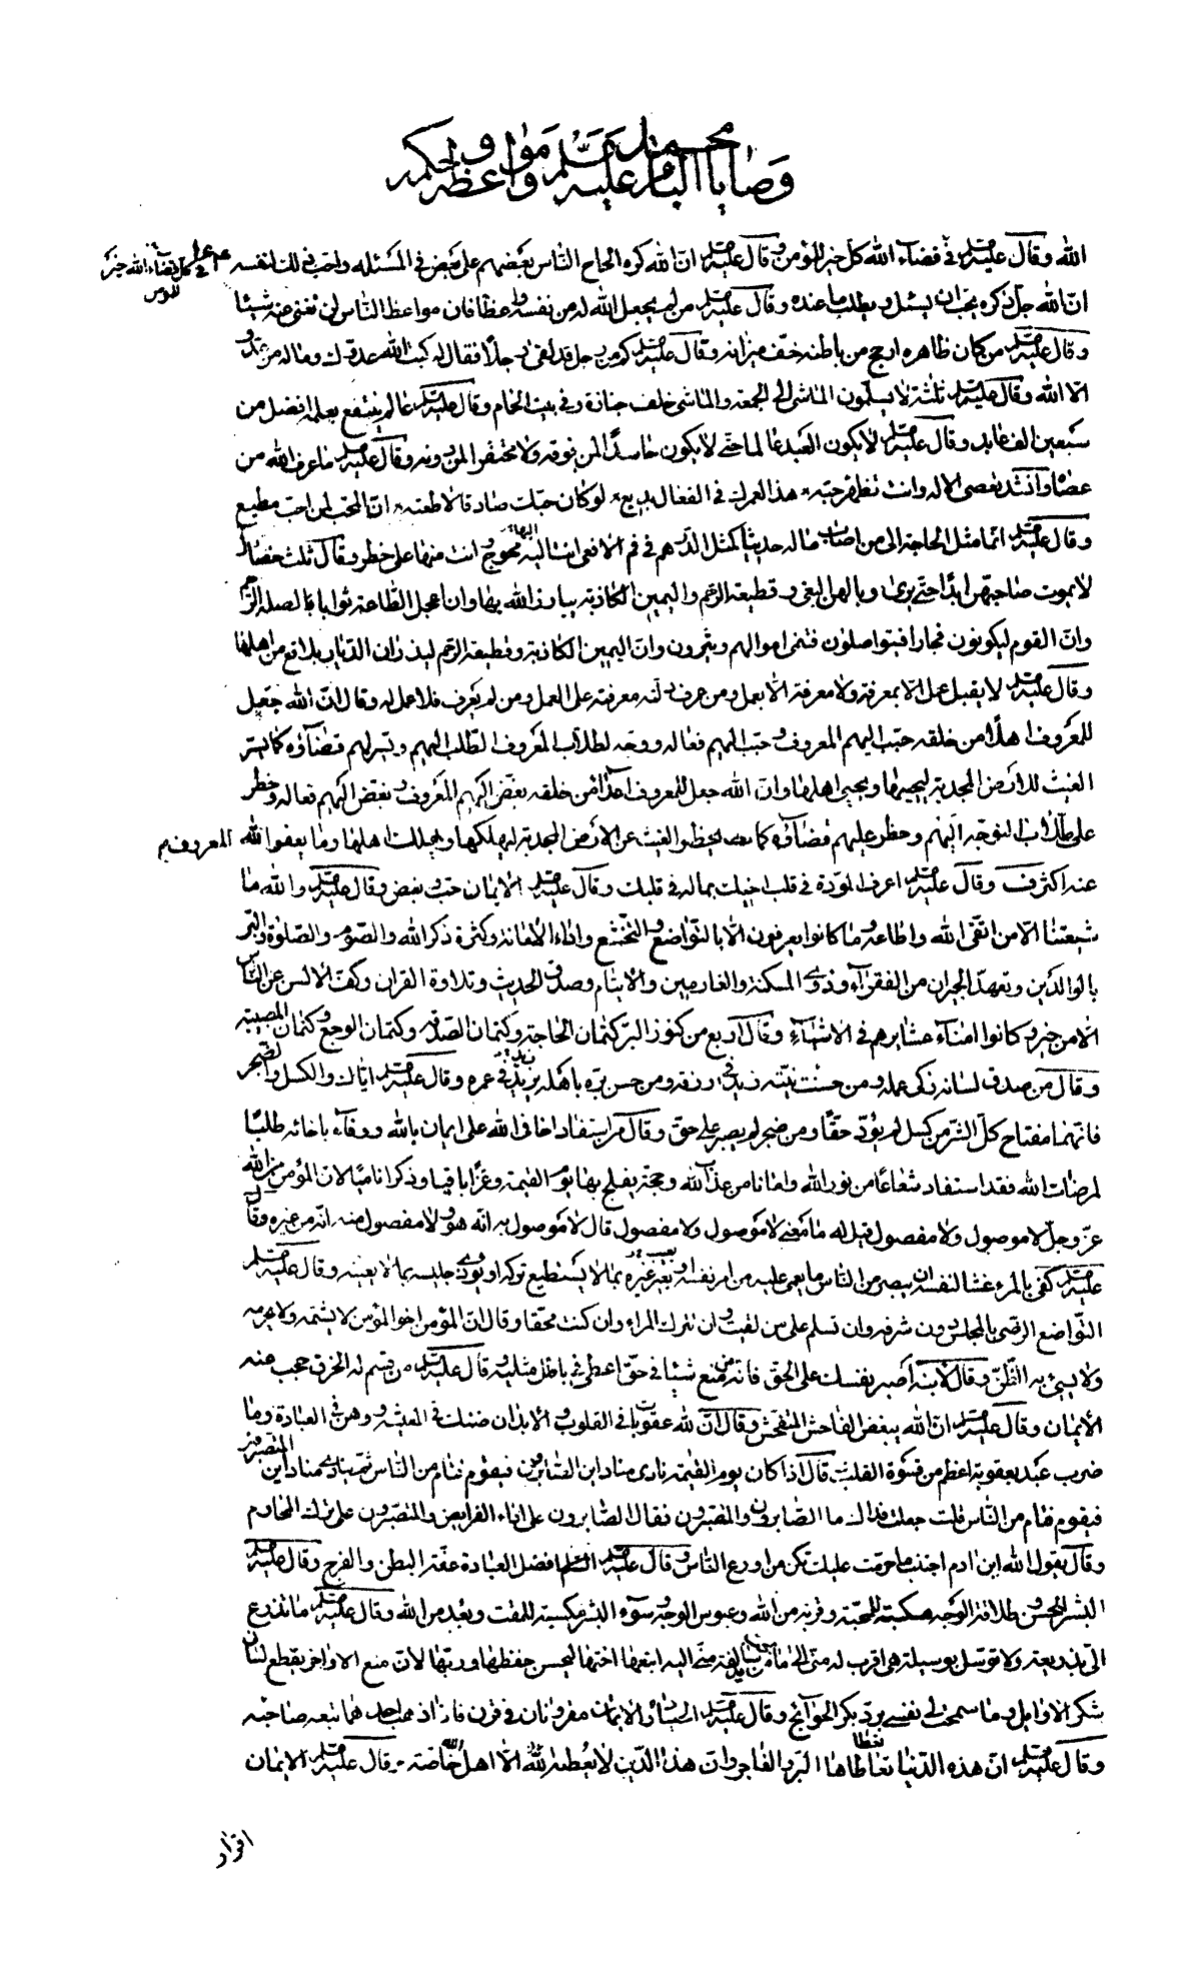 وصايا الامام محمد عليه السلم ومواعظه وحكمه
الله وقال عليه السلم في قضاء الله كل خير للمؤمن وقال عليه السلم ان الله كره الحاح الناس بعضهم على بعض في المسئله واحب ذلك لنفسه
ان الله جل ذكره يحب ان يسئل ويطلب ما عنده وقال عليه السلم من لم يجعل الله له من نفسه واعظا فان مواعظ الناس لن تغني عنه شيئا
وقال عليه السلم من كان ظاهره ارجح من باطنه خف ميزانه وقال عليه السلم كم من رجل قد لقى رجلا فقال له كبت الله عدوك وماله من عدو
الا الله وقال عليه السلم ثلثة لا يسلمون الماشي الى الجمعة والماشي خلف جنازة وفي بيت الحمام وقال عليه السلم عالم ينتفع بعلمه افضل من
سبعين الف عابد وقال عليه السلم لا يكون العبد عالما حتى لا يكون حاسدا لمن فوقه ولا محتقرا لمن دونه وقال عليه السلم ما عرف الله من
عصاه وانشد تعصى الاله وانت تظهر حبه هذا لعمرك في الفعال بديع لو كان حبك صادقا لاطعته ان المحب لمن احب مطيع
وقال عليه السلم انما مثل الحاجة الى من اصاب ماله حديثا كمثل الدرهم في فم الافعى انت اليه محوج وانت منها على خطر وقال ثلث خصال
لا يموت صاحبهن ابدا حتى يرى وبالهن البغي وقطيعة الرحم واليمين الكاذبة يبارز الله بها وان اعجل الطاعة ثوابا لصلة الرحم
وان القوم ليكونون فجارا فيتواصلون فتنمى اموالهم ويثرون وان اليمين الكاذبة وقطيعة الرحم ليذران الديار بلاقع من اهلها
وقال عليه السلم لا يقبل عمل الا بمعرفة ولا معرفة الا بعمل ومن عرف دلته معرفته على العمل ومن لم يعرف فلا عمل له وقال ان الله جعل
للمعروف اهلا من خلقه حبب اليهم المعروف وحبب اليهم فعاله ووجه لطلاب المعروف الطلب اليهم ويسر لهم قضاءه كما يسر
الغيث للارض المجدبة ليحييها ويحيى اهلها وان الله جعل للمعروف اعداء من خلقه بغض اليهم المعروف وبغض اليهم فعاله وحظر
على طلاب التوجه اليهم وحظر عليهم قضاءه كما يحظر الغيث عن الارض المجدبة ليهلكها ويهلك اهلها وما يعفو الله
عنه اكثر وقال عليه السلم اعرف المودة في قلب اخيك بماله في قلبك وقال عليه السلم الايمان حب وبغض وقال عليه السلم والله ما
شيعتنا الا من اتقى الله واطاعه وما كانوا يعرفون الا بالتواضع والتخشع واداء الامانة وكثرة ذكر الله والصوم والصلوة والبر
بالوالدين وتعهد الجيران من الفقراء وذوي المسكنة والغارمين والايتام وصدق الحديث وتلاوة القران وكف الالسن عن الناس
الا من خير وكانوا امناء عشايرهم في الاشياء وقال اربع من كنوز البر كتمان الحاجة وكتمان الصدقة وكتمان الوجع وكتمان المصيبة
وقال من صدق لسانه زكى عمله ومن حسنت نيته زيد في رزقه ومن حسن بره باهله زيد في عمره وقال عليه السلم اياك والكسل والضجر
فانهما مفتاح كل شر من كسل لم يؤد حقا ومن ضجر لم يصبر على حق وقال من استفاد اخا في الله على ايمان بالله ووفاء باخائه طلبا
لمرضات الله فقد استفاد شعاعا من نور الله وامانا من عذاب الله وحجة يفلج بها يوم القيمة وعزا باقيا وذكرا ناميا لان المؤمن من الله
عز وجل لا موصول ولا مفصول قيل له ما معنى لا موصول ولا مفصول قال لا موصول به انه هو ولا مفصول منه انه من غيره وقال
عليه السلم كفى بالمرء غشا لنفسه ان يبصر من الناس ما يعمى عليه من امر نفسه او يعيب غيره بما لا يستطيع تركه او يؤذي جليسه بما لا يعنيه وقال عليه السلم
التواضع الرضى بالمجلس دون شرفه وان تسلم على من لقيت وان تترك المراء وان كنت محقا وقال ان المؤمن اخو المؤمن لا يشتمه ولا يحرمه
ولا يسيء به الظن وقال لابنه اصبر نفسك على الحق فانه من منع شيئا في حق اعطى في باطل مثليه وقال عليه السلم من قسم له الخرق حجب عنه
الايمان وقال عليه السلم ان الله يبغض الفاحش المتفحش وقال ان لله عقوبات في القلوب والابدان ضنك في المعيشة ووهن في العبادة وما
ضرب عبد بعقوبة اعظم من قسوة القلب وقال اذا كان يوم القيمة نادى مناد اين الصابرون فيقوم فئام من الناس ثم ينادي مناد اين المتصبرون
فيقوم فئام من الناس قلت جعلت فداك ما الصابرون والمتصبرون فقال الصابرون على اداء الفرايض والمتصبرون على ترك المحارم
وقال يقول الله ابن ادم اجتنب ما حرمت عليك تكن من اورع الناس وقال عليه السلم افضل العبادة عفة البطن والفرج وقال عليه السلم
البشر الحسن وطلاقة الوجه مكسبة للمحبة وقربة من الله وعبوس الوجه وسوء البشر مكسبة للمقت وبعد من الله وقال عليه السلم ما تذرع
الى بذريعة ولا توسل بوسيلة هي اقرب له منى الى ما يحب من يد سالفة منى اليه اتبعها اختها ليحسن حفظها وربها لان منع الاواخر يقطع لسان
شكر الاوايل وما سمحت لي نفسي برد بكر الحوائج وقال عليه السلم الحياء والايمان مقرونان في قرن فاذا ذهب احدهما تبعه صاحبه
وقال عليه السلم ان هذه الدنيا تعاطاها البر والفاجر وان هذا الدين لا يعطيه الله الا اهل خاصته وقال عليه السلم الايمان
اقرار